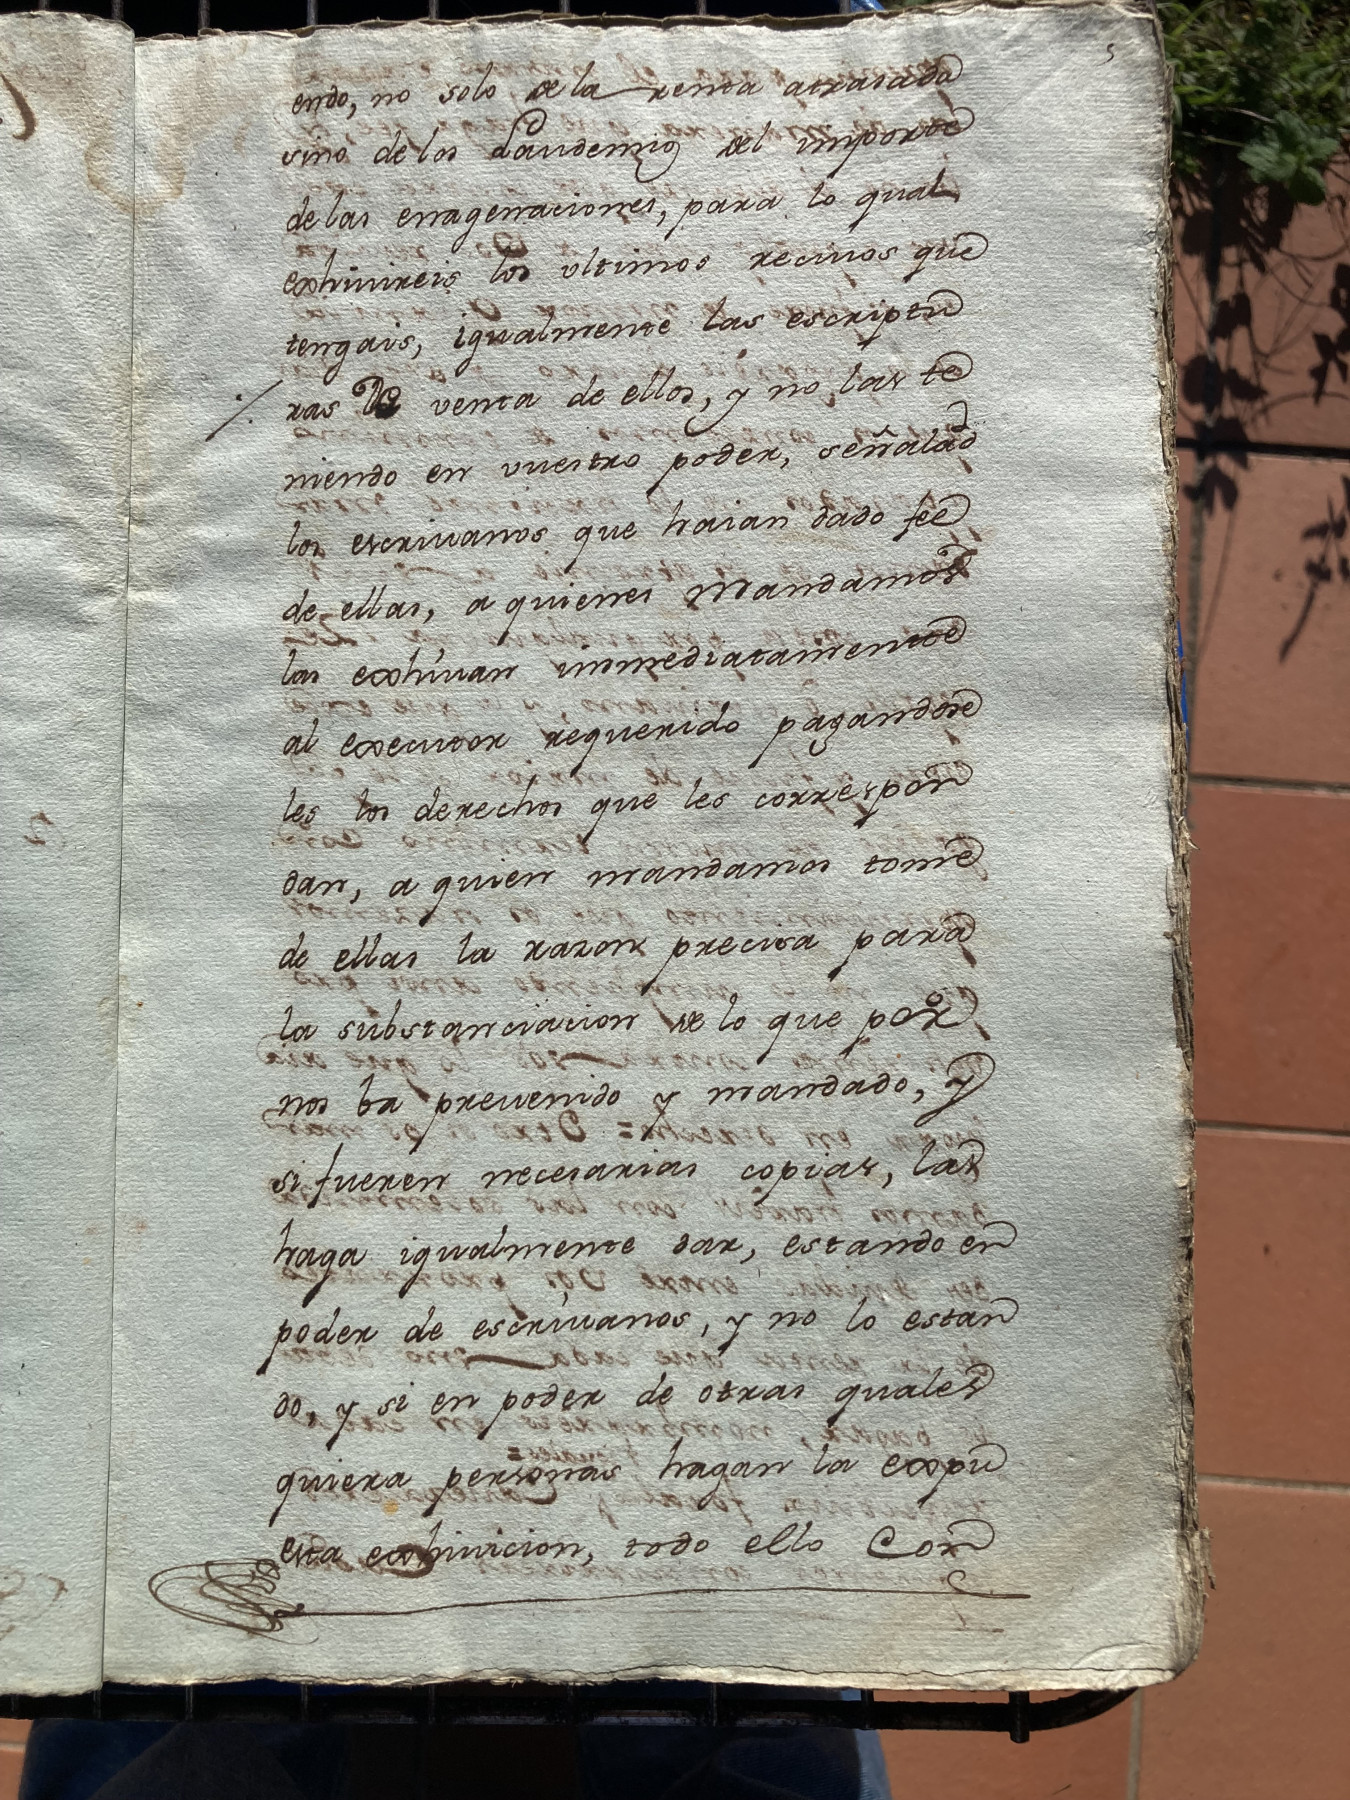 5
endo, no solo de la renta atrasada
sino de los Laudemios del importe
de las enagenaciones, para lo qual
exhiuireis los vltimos reciuos que
tengais, igualmente las escriptu
ras de venta de ellos, y no las te
niendo en vuestro poder, señalad
los escriuanos que haian dado fee
de ellas, a quienes mandamos
las exhiuan inmediatamente
al executor requerido pagandose
les los derechos que les correspon
dan, a quien mandamos tome
de ellas la razon precisa para
la substanciacion de lo que por
nos ba preuenido y mandado, y
si fueren necesarias copias, las
haga igualmente dar, estando en
poder de escriuanos, y no lo estan
do, y si en poder de otras quales
quiera personas hagan la expu
esta exhiuicion, todo ello Con